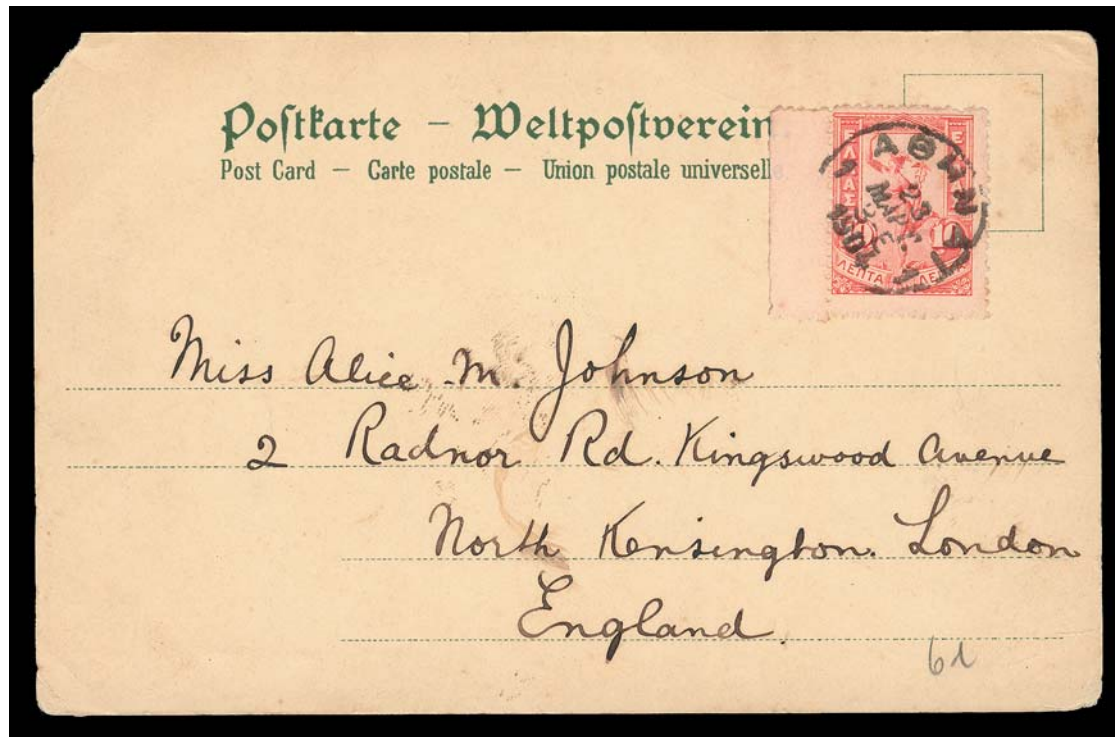 Poſtkarte – Weltpoſtverein
Post Card – Carte postale – Union postale universelle
ΕΛΛΑΣ
10
ΛΕΠΤΑ
ΑΘΗΝΑΙ
1
23
ΜΑΡΤ
1904
Miss Alice M. Johnson
2 Radnor Rd. Kingswood Avenue
North Kensington. London
England.
61